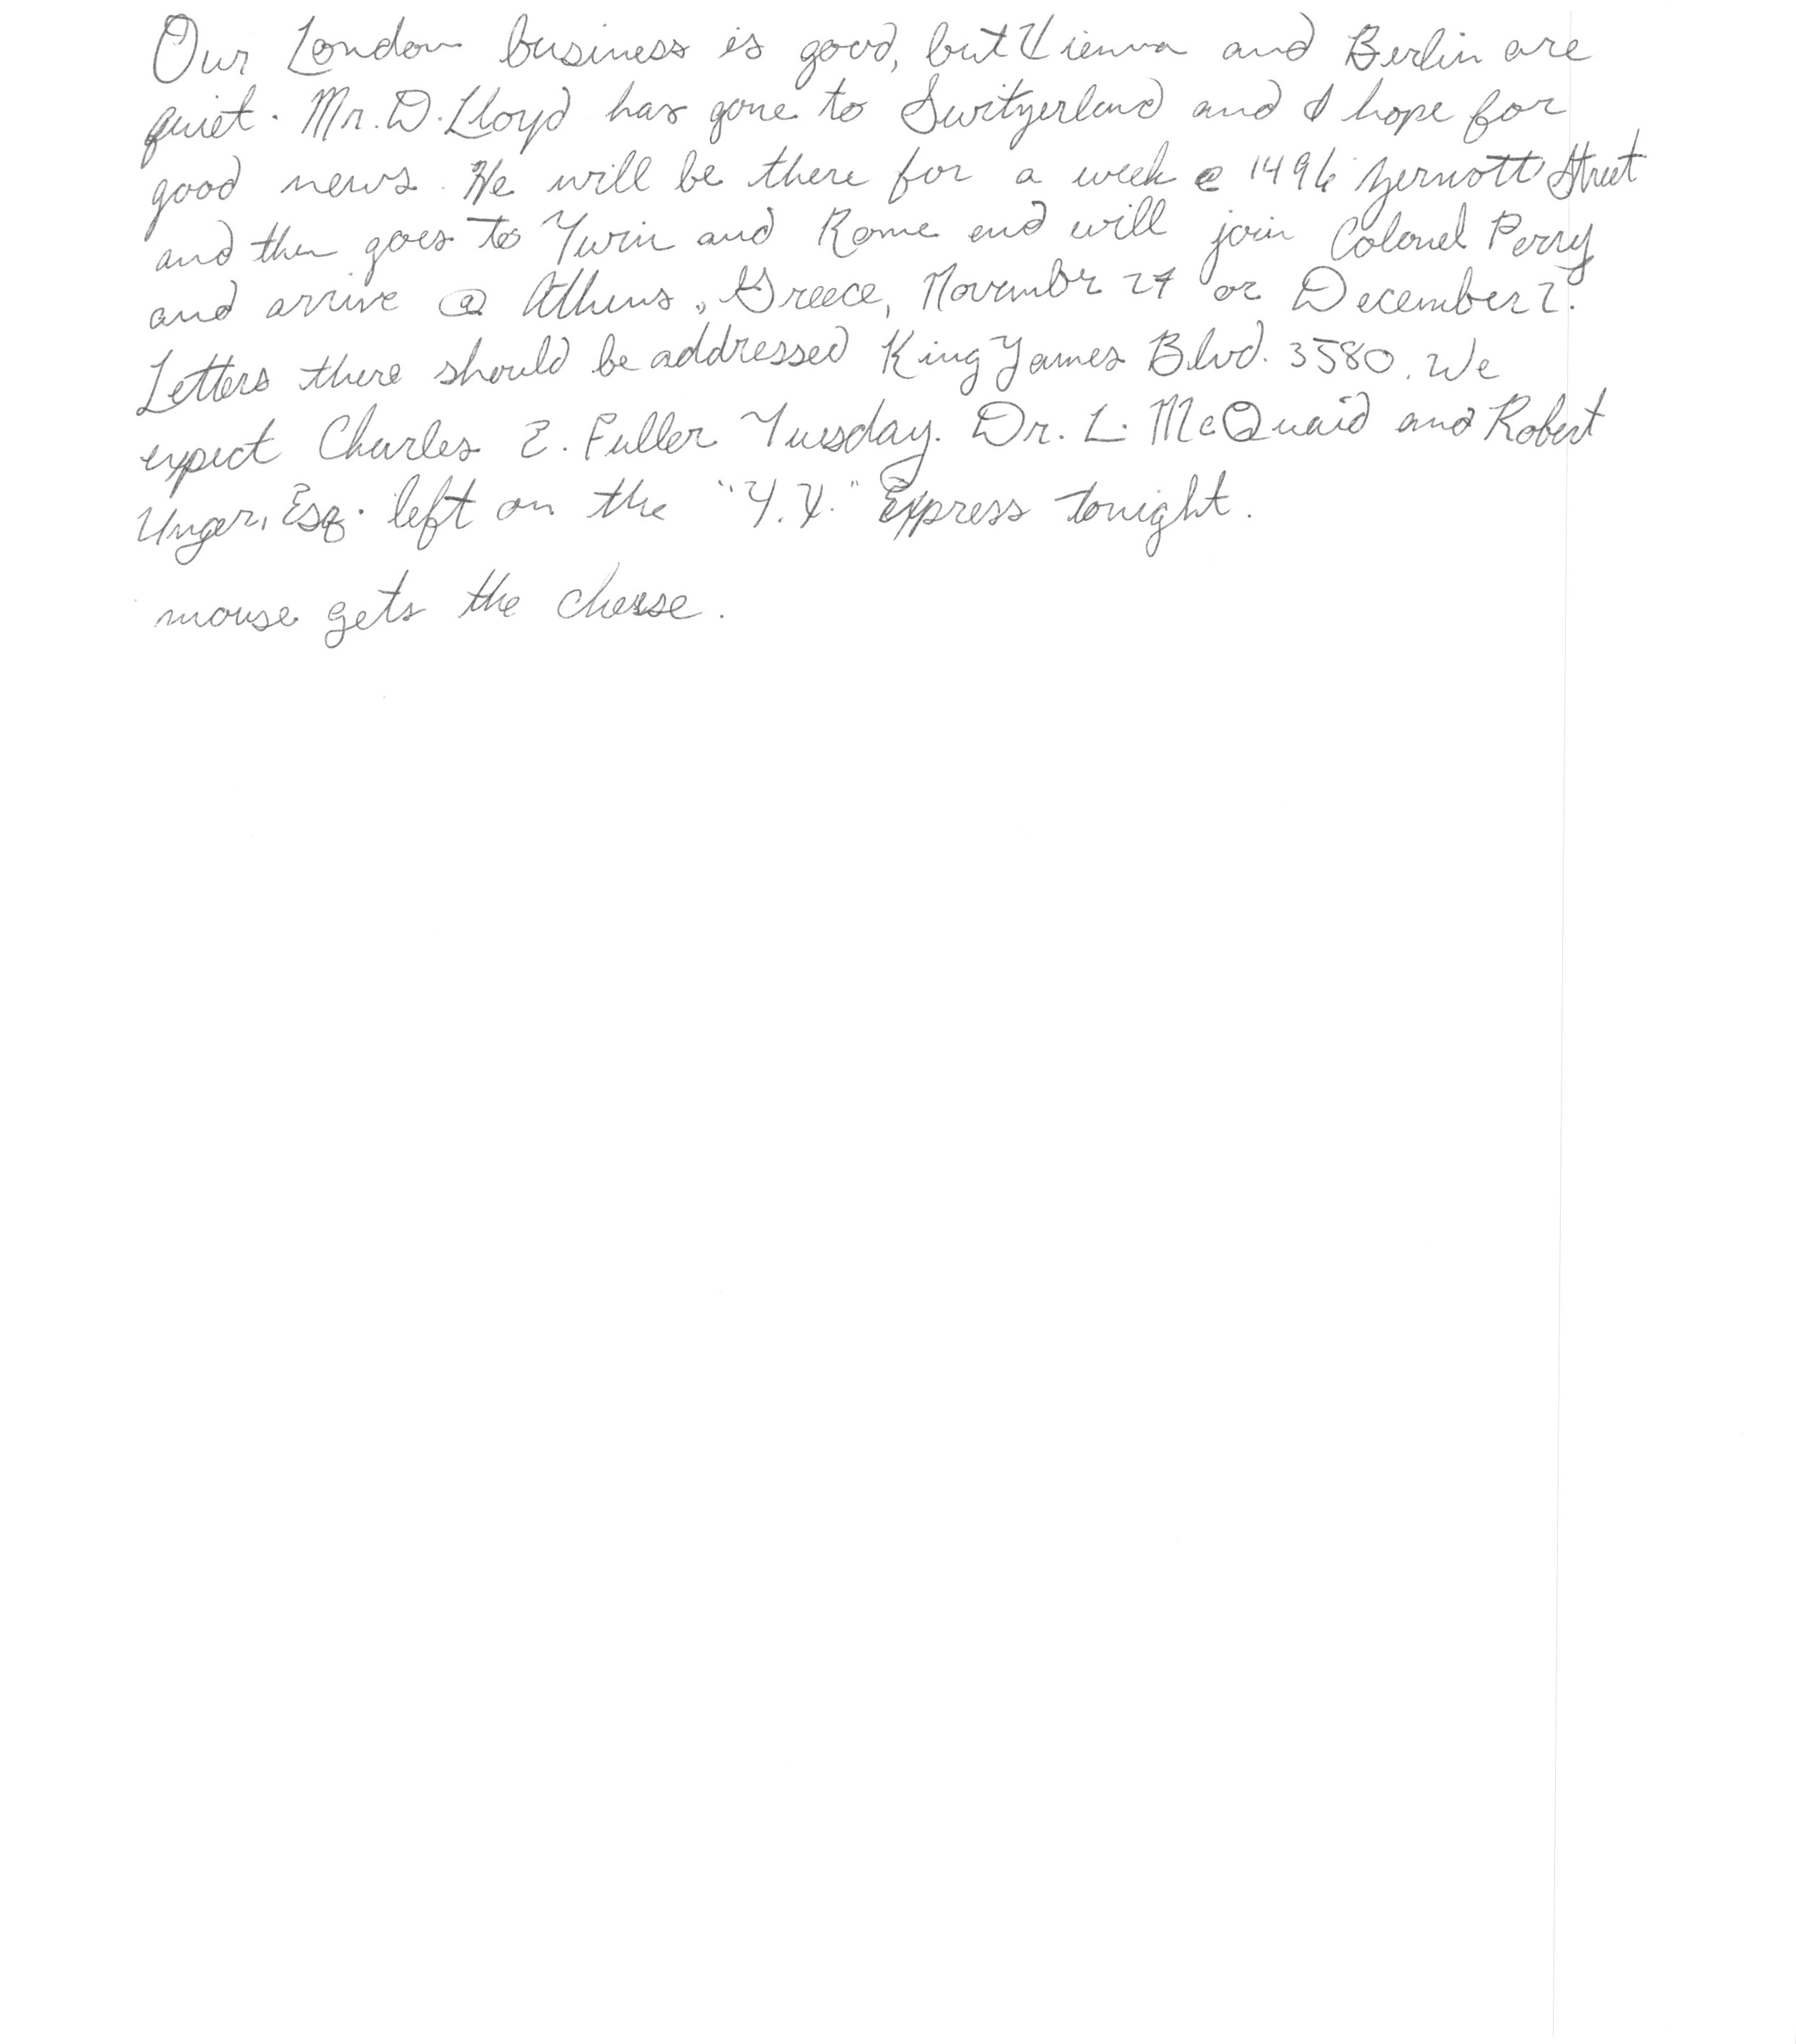 Our London business is good, but Vienna and Berlin are
quiet. Mr. D. Lloyd has gone to Switzerland and I hope for
good news. He will be there for a week @ 1496 Zermott Street
and then goes to Turin and Rome and will join Colonel Perry
and arrive @ Athens, Greece, November 27 or December 2.
Letters there should be addressed King James Blvd. 3580. We
expect Charles E. Fuller Tuesday. Dr. L. McQuaid and Robert
Unger, Esq. left on the "Y.X." Express tonight.
mouse gets the cheese.